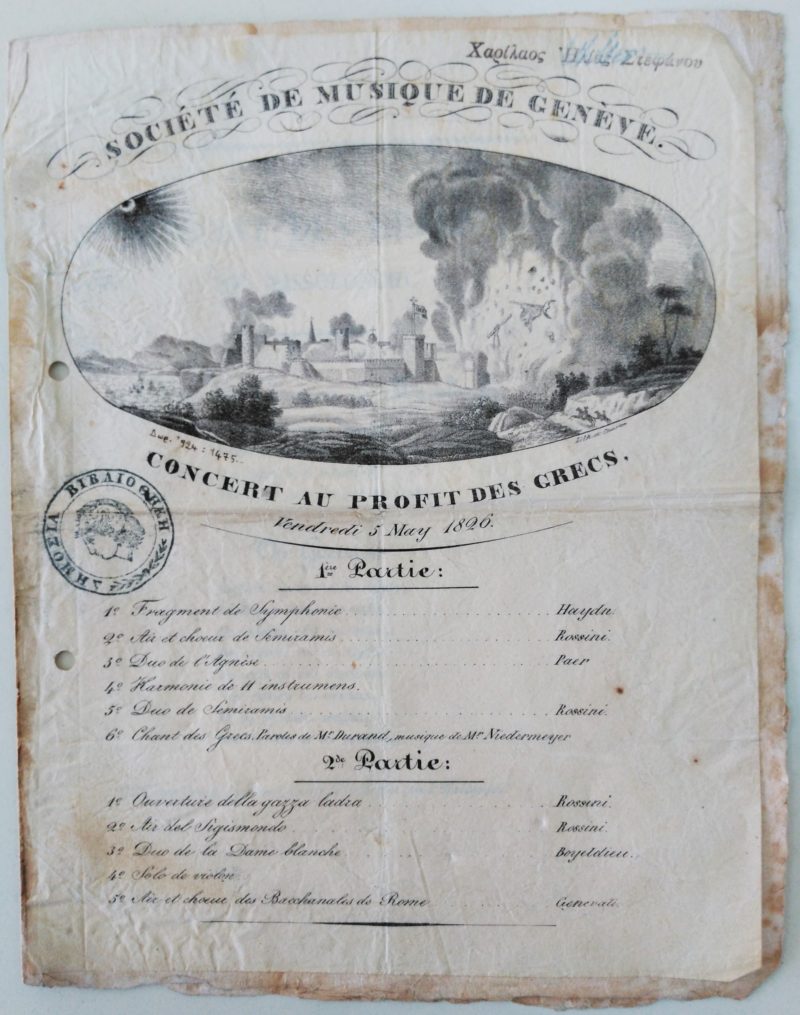 Χαρίλαος Ἠλίας Στεφάνου
SOCIÉTÉ DE MUSIQUE DE GENÈVE.
Δωρ. '924 : 1475.
CONCERT AU PROFIT DES GRECS,
Vendredi 5 May 1826.
ΔΗΜΟΣΙΑ ΒΙΒΛΙΟΘΗΚΗ
1ère Partie:
1º Fragment de Symphonie .......... Haydn.
2º Air et choeur de Sémiramis .......... Rossini.
3º Duo de l'Agnèse .......... Paer
4º Harmonie de 11 instrumens.
5º Duo de Sémiramis .......... Rossini.
6º Chant des Grecs. Paroles de Mr. Durand, musique de Mr. Niedermeyer
2de Partie:
1º Ouverture della gazza ladra .......... Rossini.
2º Air del Sigismondo .......... Rossini.
3º Duo de la Dame blanche .......... Boyeldieu.
4º Solo de violon
5º Air et choeur des Bacchanales de Rome .......... Generali.